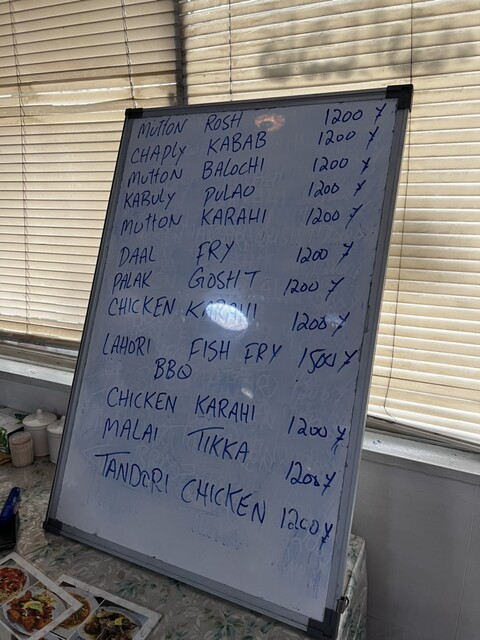 MUTTON ROSH 1200 ¥
CHAPLY KABAB 1200 ¥
MUTTON BALOCHI 1200 ¥
KABULY PULAO 1200 ¥
MUTTON KARAHI 1200 ¥
DAAL FRY 1200 ¥
PALAK GOSHT 1200 ¥
CHICKEN KARAHI 1200 ¥
LAHORI FISH FRY 1500 ¥
BBQ
CHICKEN KARAHI 1200 ¥
MALAI TIKKA 1200 ¥
TANDORI CHICKEN 1200 ¥